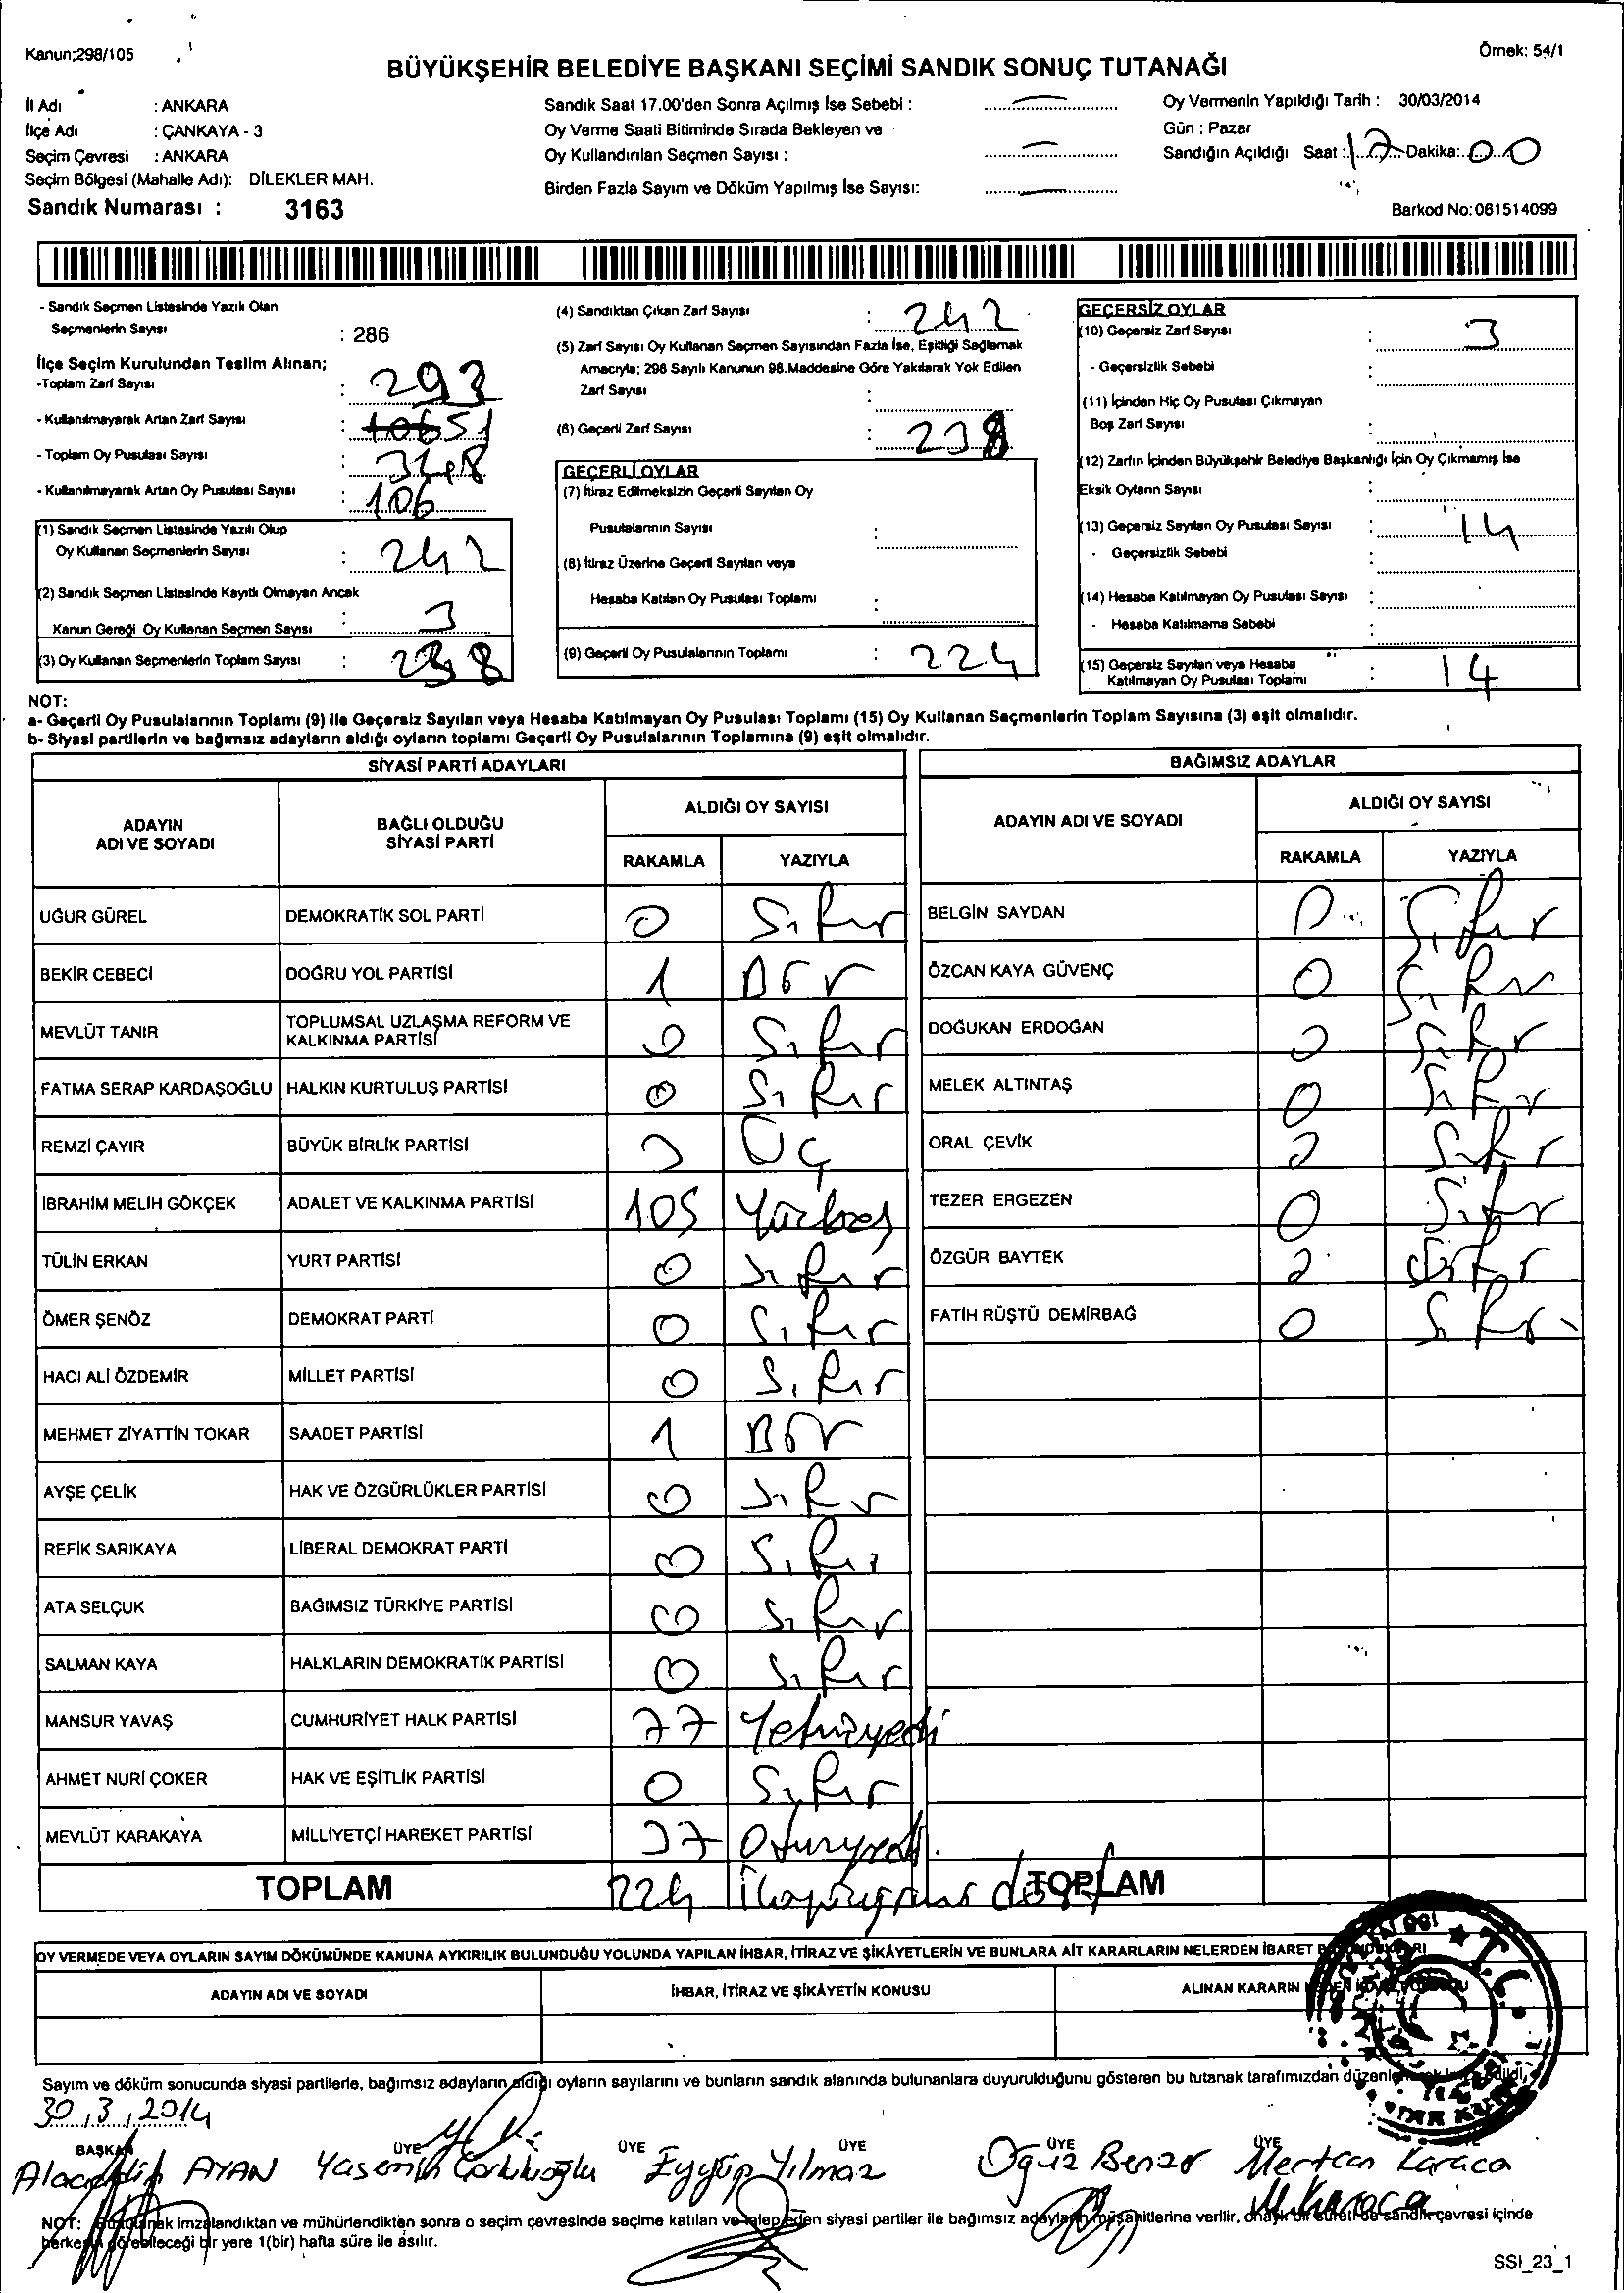 Kanun;298/105
Örnek: 54/1
BÜYÜKŞEHİR BELEDİYE BAŞKANI SEÇİMİ SANDIK SONUÇ TUTANAĞI
İl Adı : ANKARA
İlçe Adı : ÇANKAYA - 3
Seçim Çevresi : ANKARA
Seçim Bölgesi (Mahalle Adı): DİLEKLER MAH.
Sandık Numarası : 3163
Sandık Saat 17.00'den Sonra Açılmış İse Sebebi :
Oy Verme Saati Bitiminde Sırada Bekleyen ve
Oy Kullandırılan Seçmen Sayısı :
Birden Fazla Sayım ve Döküm Yapılmış İse Sayısı:
Oy Vermenin Yapıldığı Tarih : 30/03/2014
Gün : Pazar
Sandığın Açıldığı Saat : 17 Dakika: 00
Barkod No:061514099
- Sandık Seçmen Listesinde Yazılı Olan
Seçmenlerin Sayısı : 286
İlçe Seçim Kurulundan Teslim Alınan;
-Toplam Zarf Sayısı : 293
- Kullanılmayarak Artan Zarf Sayısı : 51
- Toplam Oy Pusulası Sayısı : 348
- Kullanılmayarak Artan Oy Pusulası Sayısı : 106
(1) Sandık Seçmen Listesinde Yazılı Olup
Oy Kullanan Seçmenlerin Sayısı : 242
(2) Sandık Seçmen Listesinde Kayıtlı Olmayan Ancak
Kanun Gereği Oy Kullanan Seçmen Sayısı : 3
(3) Oy Kullanan Seçmenlerin Toplam Sayısı : 238
(4) Sandıktan Çıkan Zarf Sayısı : 242
(5) Zarf Sayısı Oy Kullanan Seçmen Sayısından Fazla İse, Eşitliği Sağlamak
Amacıyla; 298 Sayılı Kanunun 98.Maddesine Göre Yakılarak Yok Edilen
Zarf Sayısı :
(6) Geçerli Zarf Sayısı : 238
GEÇERLİ OYLAR
(7) İtiraz Edilmeksizin Geçerli Sayılan Oy
Pusulalarının Sayısı :
(8) İtiraz Üzerine Geçerli Sayılan veya
Hesaba Katılan Oy Pusulası Toplamı :
(9) Geçerli Oy Pusulalarının Toplamı : 224
GEÇERSİZ OYLAR
(10) Geçersiz Zarf Sayısı : 3
- Geçersizlik Sebebi :
(11) İçinden Hiç Oy Pusulası Çıkmayan
Boş Zarf Sayısı :
(12) Zarfın İçinden Büyükşehir Belediye Başkanlığı İçin Oy Çıkmamış İse
Eksik Oyların Sayısı :
(13) Geçersiz Sayılan Oy Pusulası Sayısı : 14
- Geçersizlik Sebebi :
(14) Hesaba Katılmayan Oy Pusulası Sayısı :
- Hesaba Katılmama Sebebi :
(15) Geçersiz Sayılan veya Hesaba
Katılmayan Oy Pusulası Toplamı : 14
NOT:
a- Geçerli Oy Pusulalarının Toplamı (9) ile Geçersiz Sayılan veya Hesaba Katılmayan Oy Pusulası Toplamı (15) Oy Kullanan Seçmenlerin Toplam Sayısına (3) eşit olmalıdır.
b- Siyasi partilerin ve bağımsız adayların aldığı oyların toplamı Geçerli Oy Pusulalarının Toplamına (9) eşit olmalıdır.
SİYASİ PARTİ ADAYLARI
ADAYIN ADI VE SOYADI
BAĞLI OLDUĞU SİYASİ PARTİ
ALDIĞI OY SAYISI
RAKAMLA YAZIYLA
UĞUR GÜREL DEMOKRATİK SOL PARTİ 0 Sıfır
BEKİR CEBECİ DOĞRU YOL PARTİSİ 1 Bir
MEVLÜT TANIR TOPLUMSAL UZLAŞMA REFORM VE KALKINMA PARTİSİ 0 Sıfır
FATMA SERAP KARDAŞOĞLU HALKIN KURTULUŞ PARTİSİ 0 Sıfır
REMZİ ÇAYIR BÜYÜK BİRLİK PARTİSİ 3 Üç
İBRAHİM MELİH GÖKÇEK ADALET VE KALKINMA PARTİSİ 105 Yüzbeş
TÜLİN ERKAN YURT PARTİSİ 0 Sıfır
ÖMER ŞENÖZ DEMOKRAT PARTİ 0 Sıfır
HACI ALİ ÖZDEMİR MİLLET PARTİSİ 0 Sıfır
MEHMET ZİYATTİN TOKAR SAADET PARTİSİ 1 Bir
AYŞE ÇELİK HAK VE ÖZGÜRLÜKLER PARTİSİ 0 Sıfır
REFİK SARIKAYA LİBERAL DEMOKRAT PARTİ 0 Sıfır
ATA SELÇUK BAĞIMSIZ TÜRKİYE PARTİSİ 0 Sıfır
SALMAN KAYA HALKLARIN DEMOKRATİK PARTİSİ 0 Sıfır
MANSUR YAVAŞ CUMHURİYET HALK PARTİSİ 77 Yetmişyedi
AHMET NURİ ÇOKER HAK VE EŞİTLİK PARTİSİ 0 Sıfır
MEVLÜT KARAKAYA MİLLİYETÇİ HAREKET PARTİSİ 37 Otuzyedi
TOPLAM 224 İkiyüzyirmi dört
BAĞIMSIZ ADAYLAR
ADAYIN ADI VE SOYADI
ALDIĞI OY SAYISI
RAKAMLA YAZIYLA
BELGİN SAYDAN 0 Sıfır
ÖZCAN KAYA GÜVENÇ 0 Sıfır
DOĞUKAN ERDOĞAN 0 Sıfır
MELEK ALTINTAŞ 0 Sıfır
ORAL ÇEVİK 0 Sıfır
TEZER ERGEZEN 0 Sıfır
ÖZGÜR BAYTEK 0 Sıfır
FATİH RÜŞTÜ DEMİRBAĞ 0 Sıfır
TOPLAM
OY VERMEDE VEYA OYLARIN SAYIM DÖKÜMÜNDE KANUNA AYKIRILIK BULUNDUĞU YOLUNDA YAPILAN İHBAR, İTİRAZ VE ŞİKÂYETLERİN VE BUNLARA AİT KARARLARIN NELERDEN İBARET
ADAYIN ADI VE SOYADI
İHBAR, İTİRAZ VE ŞİKÂYETİN KONUSU
ALINAN KARARIN
T.C.
Sayım ve döküm sonucunda siyasi partilerle, bağımsız adayların aldığı oyların sayılarını ve bunların sandık alanında bulunanlara duyurulduğunu gösteren bu tutanak tarafımızdan
30/3/2014
BAŞKAN ÜYE ÜYE ÜYE ÜYE ÜYE
Alaeddin AYAN Yasemin Eyyüp Yılmaz Oğuz Benzer Mertcan Karaca
M Karaca
NOT: imzalandıktan ve mühürlendikten sonra o seçim çevresinde seçime katılan ve talep eden siyasi partiler ile bağımsız adayların müşahitlerine verilir, onaylı bir sureti de sandık çevresi içinde
herkesin görebileceği bir yere 1(bir) hafta süre ile asılır.
SSI_23_1